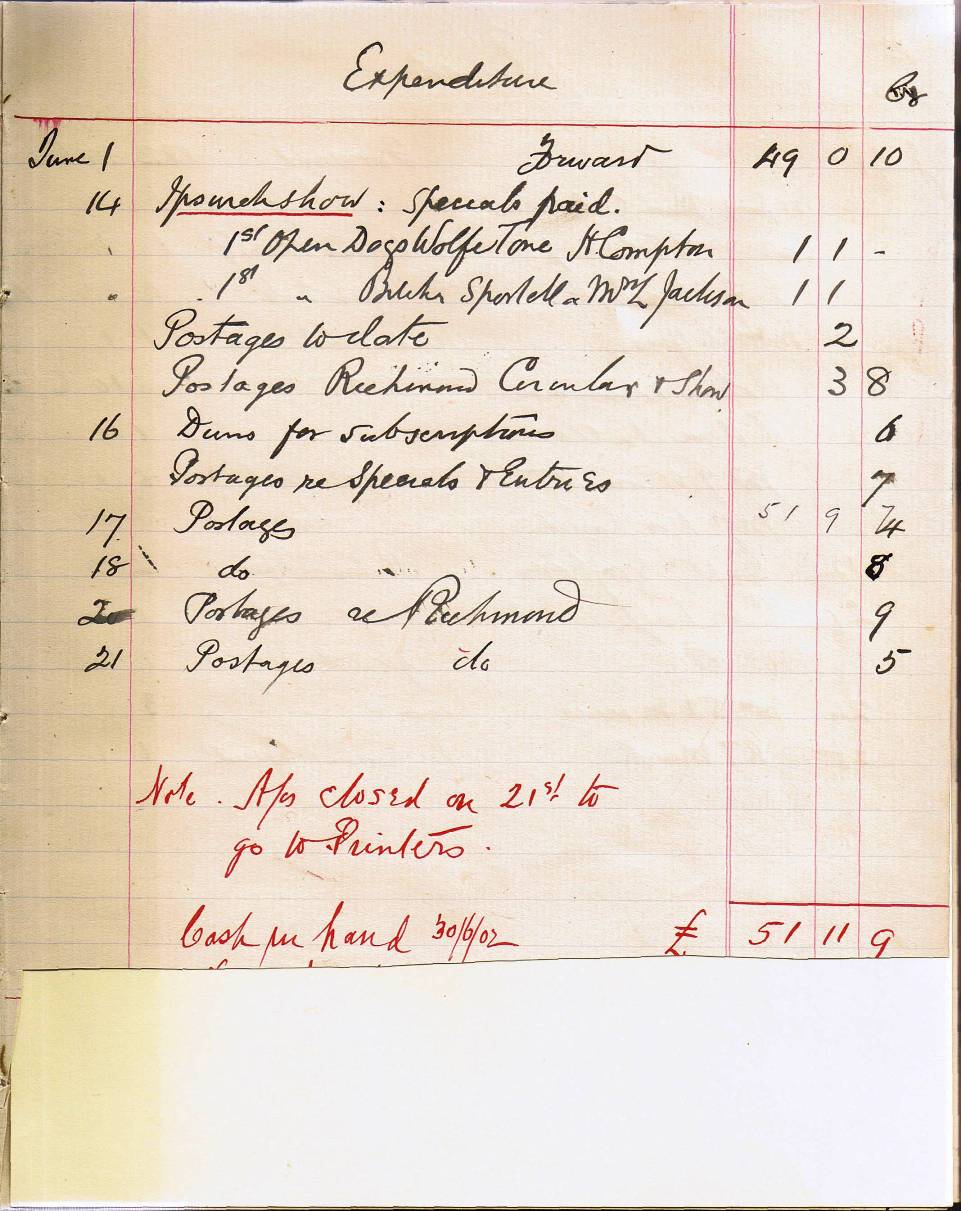 Expenditure
June 1 Forward 49 0 10
14 Ipswich show : Specials paid.
" 1st Open Dogs Wolfe Tone H Compton 1 1 -
" 1st " Bitches Sportella Mrs L Jackson 1 1
Postages to date 2
Postages Richmond Circular & Show 3 8
16 Duns for subscriptions 6
Postages re Specials & Entries 7
17 Postages 51 9 7 4
18 do 8
20 Postages re Richmond 9
21 Postages do 5
Note. A/cs closed on 21st to
go to Printers.
Cash in hand 30/6/02 £ 51 11 9